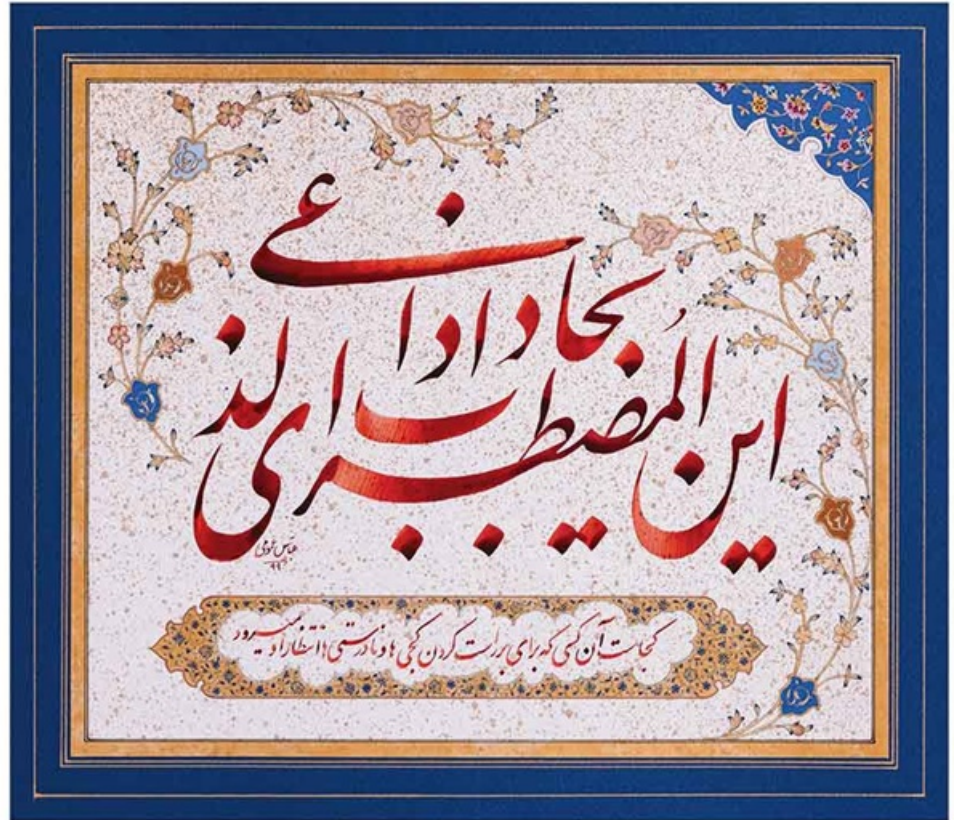 این المضطر الذی یجاب اذا دعی
عباس
۹۹
کجاست آن کسی که برای بر راست کردن کجی ها و نادرستی ها انتظار او میرود